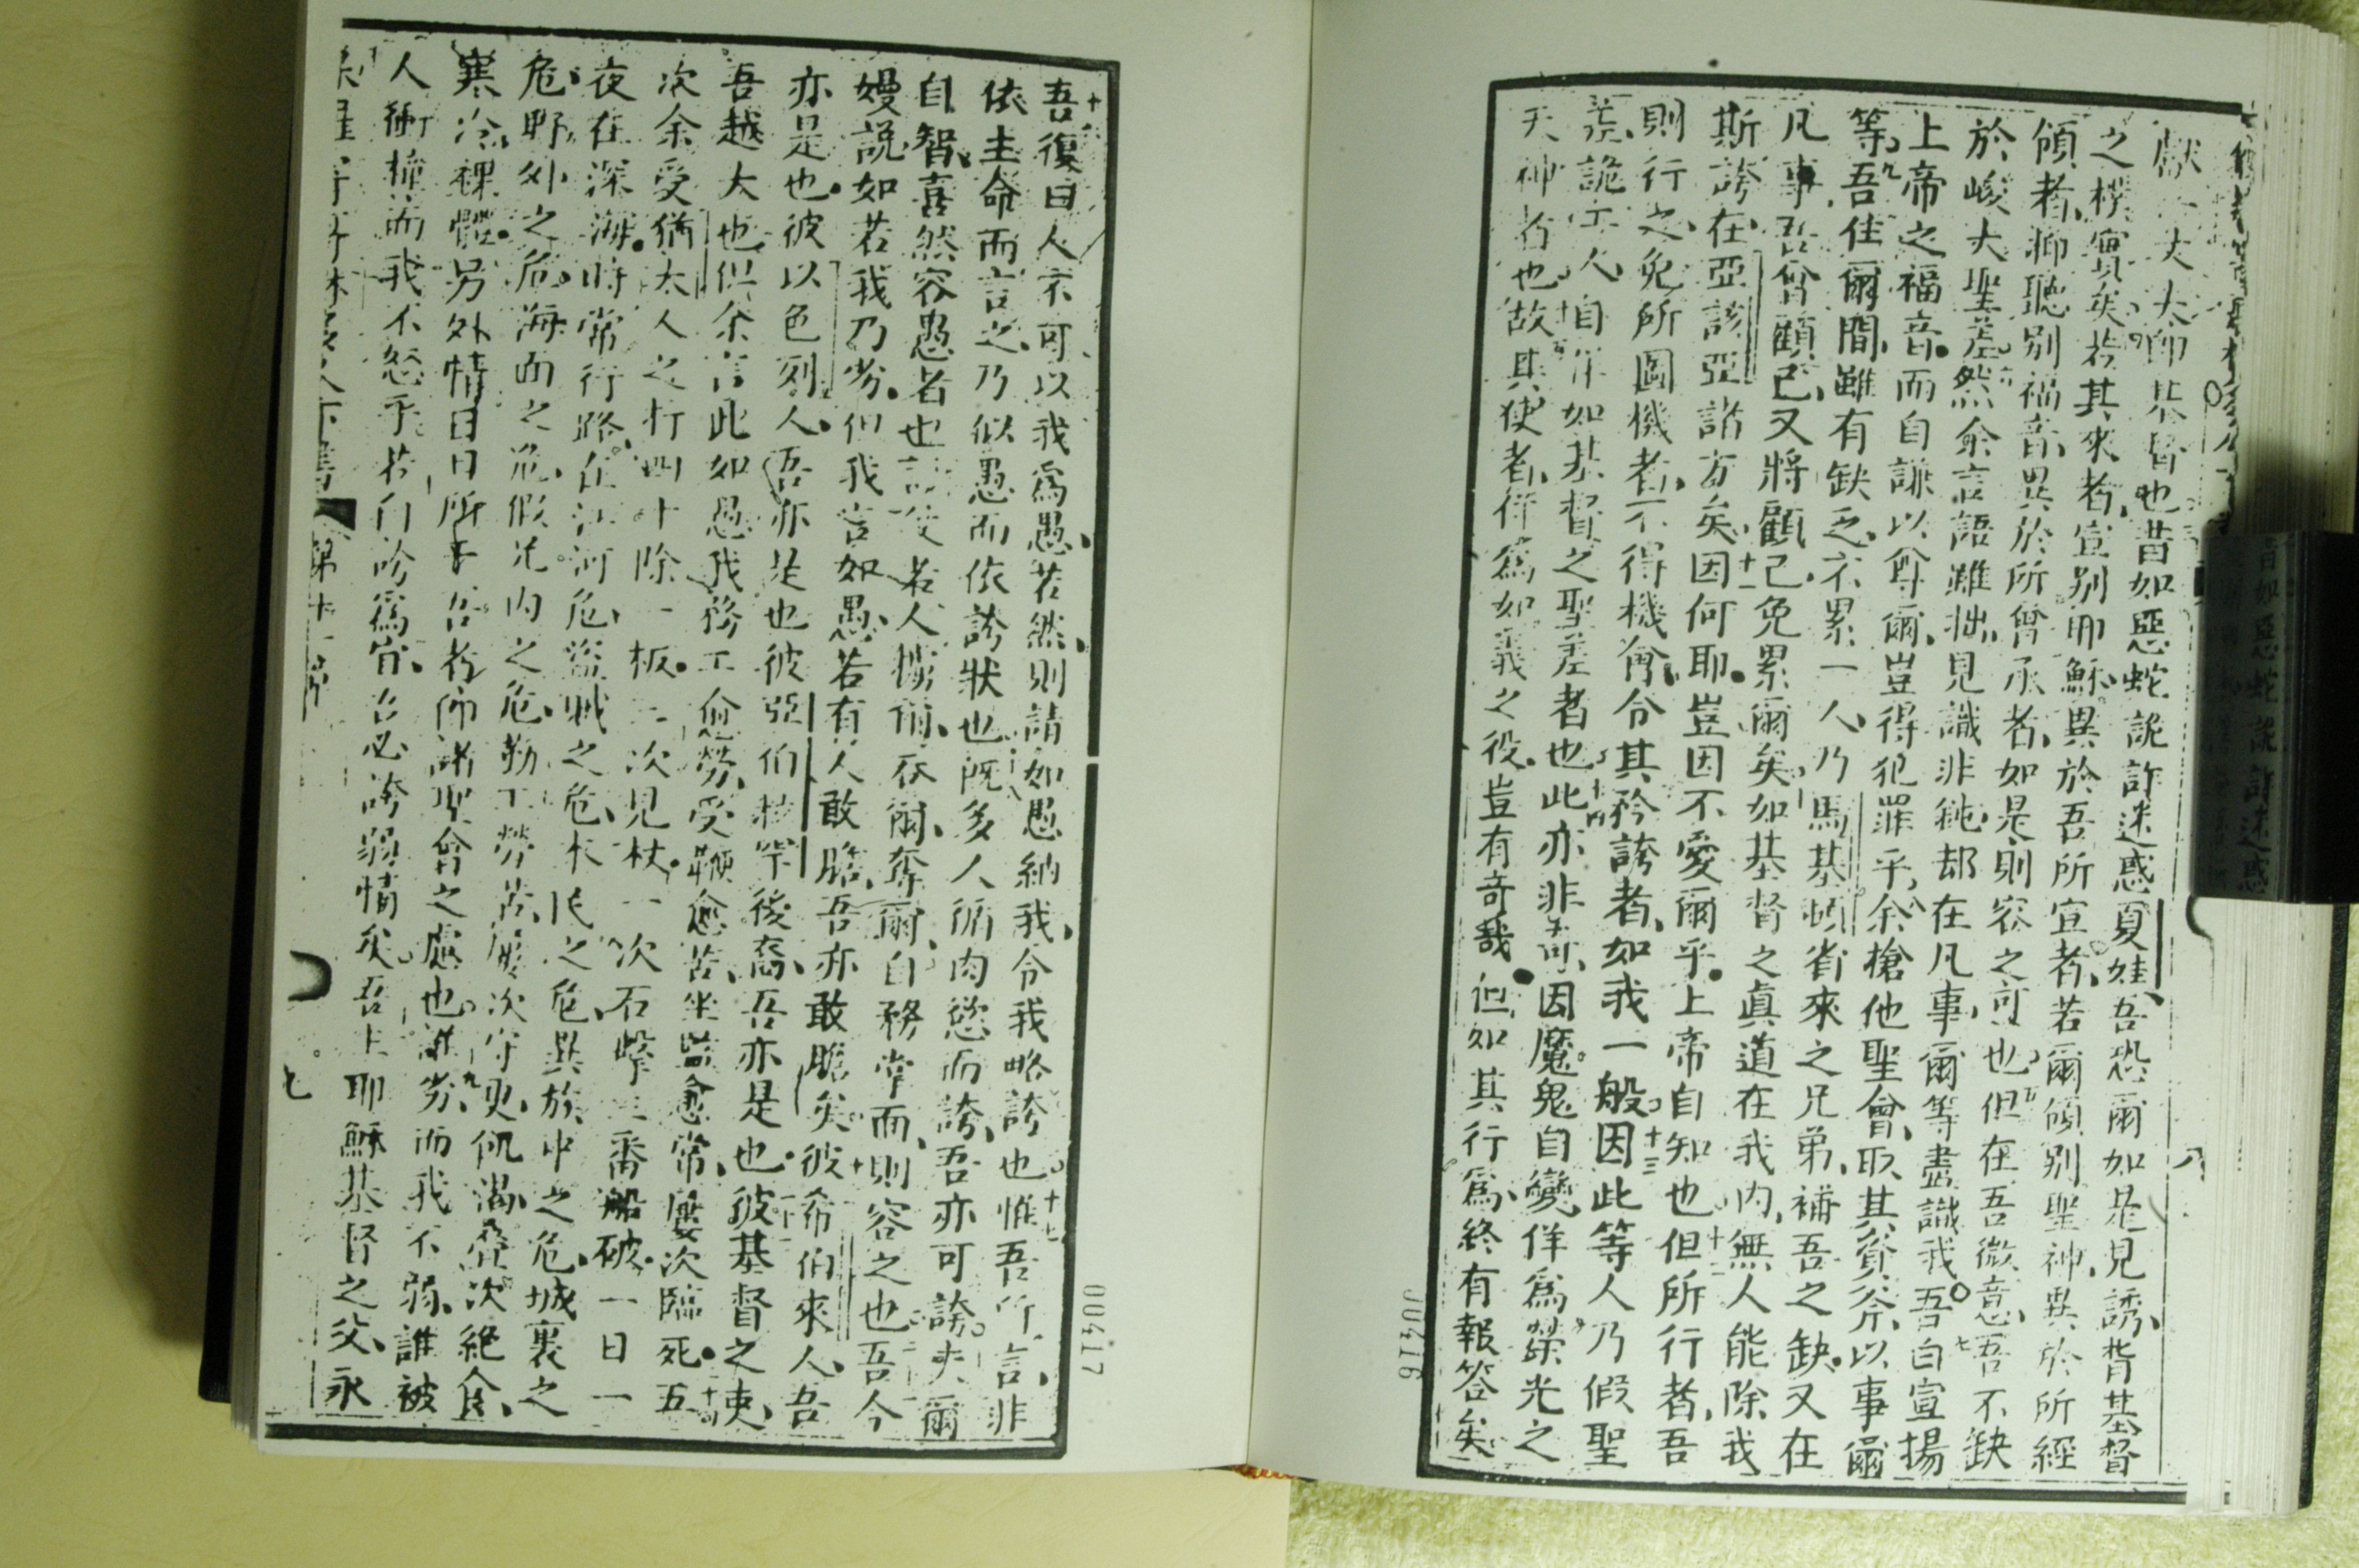 獻一丈夫卽基督也昔如惡蛇詭詐迷惑夏娃吾恐爾如是見誘背基督
之樸實矣若其來者宣別耶穌異於吾所宣者若爾傾別聖神異於所經
傾者抑聽別福音異於所曾承者如是則容之可也但在吾微意吾不缺
於峻大聖差然余言語雖拙見識非純却在凡事爾等盡識我吾白宣揚
上帝之福音而自謙以尊爾豈得犯罪乎余搶他聖會取其資斧以事爾
等吾住爾間雖有缺乏不累一人乃馬基頓省來之兄弟補吾之缺又在
凡事吾曾顧己又將顧己免累爾矣如基督之眞道在我內無人能除我
斯誇在亞該亞諸方矣因何耶豈因不愛爾乎上帝自知也但所行者吾
則行之免所圖機者不得機會令其矜誇者如我一般因此等人乃假聖
差詭工人自佯如基督之聖差者也此亦非奇因魔鬼自變佯爲榮光之
天神者也故其使者佯爲如義之役豈有奇哉但如其行爲終有報答矣
八
00416
吾復曰人不可以我爲愚若然則請如愚納我令我略誇也惟吾所言非
依主命而言之乃似愚而依誇狀也旣多人循肉慾而誇吾亦可誇夫爾
自智喜然容愚者也設使若人擄爾吞爾奪爾自務掌而則容之也吾今
嫚說如若我乃劣但我言如愚若有人敢膽吾亦敢膽矣彼希伯來人吾
亦是也彼以色列人吾亦是也彼亞伯拉罕後裔吾亦是也彼基督之吏
吾越大也但余言此如愚我務工愈勞受鞭愈苦坐監愈常屢次臨死五
次余受猶太人之打四十除一板三次見杖一次石擊三番船破一日一
夜在深海時常行路在江河危盜賊之危本民之危異族中之危城裏之
危野外之危海面之危假兄內之危勤工勞苦屢次守更飢渴疊次絕食
寒冷裸體另外情日日所 者卽諸聖會之慮也誰劣而我不弱誰被
人衝撞而我不怒乎若自誇爲宜吾必誇弱情矣吾主耶穌基督之父永
第十一章
七
00417